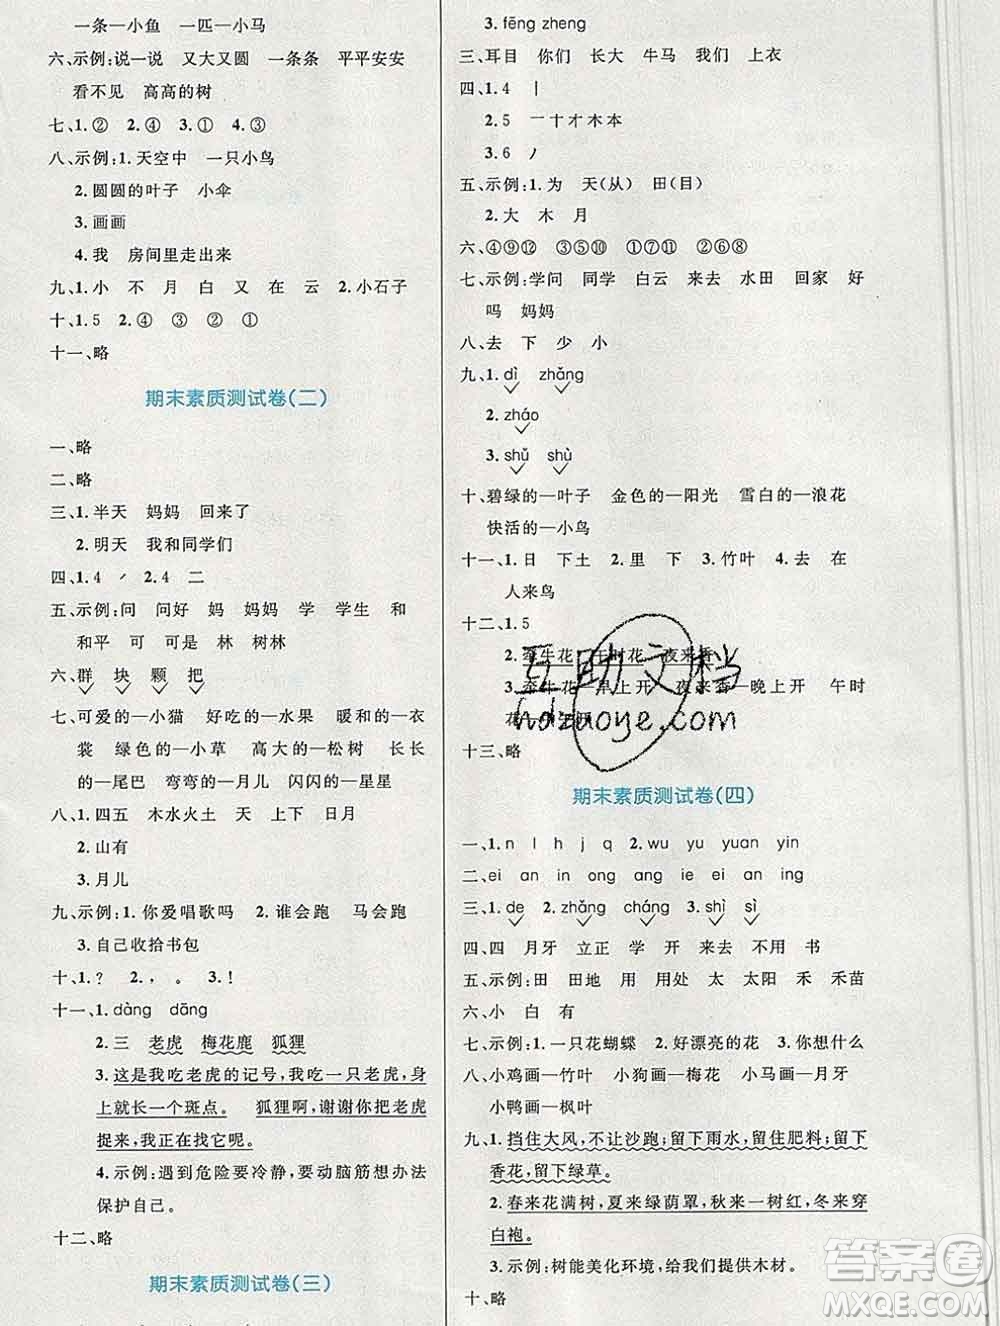 一条—小鱼 一匹—小马
六、示例:说一说 又大又圆 一条条 平平安安
看不见 高高的树
七、1.② 2.④ 3.① 4.③
八、示例:1.天空中 一只小鸟
2.圆圆的叶子 小伞
3.画画
4.我 房间里走出来
九、1.小 不 月 白 又 在 云 2.小石子
十、1.5 2.④ ③ ② ①
十一、略
期末素质测试卷(二)
一、略
二、略
三、1.半天 妈妈 回来了
2.明天 我和同学们
四、1.4 ㇒ 2.4 二
五、示例:问 问好 妈 妈妈 学 学生 和
和平 可 可是 林 树林
六、群 块 颗 把
七、可爱的—小猫 好吃的—水果 暖和的—衣
裳 绿色的—小草 高大的—松树 长长
的—尾巴 弯弯的—月儿 闪闪的—星星
八、1.四五 木水火土 天 上下 日月
2.山有
3.月儿
九、示例:1.你爱唱歌吗 2.谁会跑 马会跑
3.自己收拾书包
十、1.? 2., 。 3.!
十一、1.dàng dāng
2.三 老虎 梅花鹿 狐狸
3.这是我吃老虎的记号,我吃一只老虎,身
上就长一个斑点。 狐狸啊,谢谢你把老虎
捉来,我正在找它呢。
4.示例:遇到危险要冷静,要动脑筋想办法
保护自己。
十二、略
期末素质测试卷(三)
3.fēng zheng
三、耳目 你们 长大 牛马 我们 上衣
四、1.4 丨
2.5 一十才木本
3.6 丿
五、示例:1.为 天(从) 田(目)
2.大 木 月
六、④⑨⑫ ③⑤⑩ ①⑦⑪ ②⑥⑧
七、示例:学问 同学 白云 来去 水田 回家 好
吗 妈妈
八、去 下 少 小
九、1.dì zhǎng
2.zháo
3.shǔ shù
十、碧绿的—叶子 金色的—阳光 雪白的—浪花
快活的—小鸟
十一、1.日 下土 2.里 下 3.竹叶 4.去 在
人来鸟
十二、1.5
2.牵牛花 午时花 夜来香
3.牵牛花—早上开 夜来香—晚上开 午时
花—中午开
互助文档
hdzuoye.com
十三、略
期末素质测试卷(四)
一、1.n l h j q 2.wu yu yuan yin
二、ei an in ong ang ie an ing
三、1.de 2.zhāng cháng 3.shì sì
四、四 月牙 立正 学 开 来去 不用 书
五、示例:田 田地 用 用处 太 太阳 禾 禾苗
六、小 白 有
七、示例:1.一只花蝴蝶 2.好漂亮的花 3.你想什么
八、小鸡画—竹叶 小狗画—梅花 小马画—月牙
小鸭画—枫叶
九、1.挡住大风,不让沙跑;留下雨水,留住肥料;留下
香花,留下绿草。
2.春来花满树,夏来绿荫罩,秋来一树红,冬来穿
白袍。
3.示例:树能美化环境,给我们提供木材。
十、略
答案圈
MXQE.COM